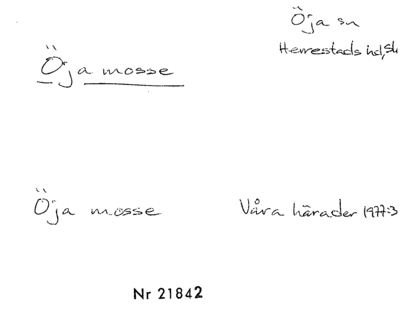 Öja sn
Herrestads hd, Sk
Öja mosse
Öja mosse
Våra härader 1977:3
Nr 21842